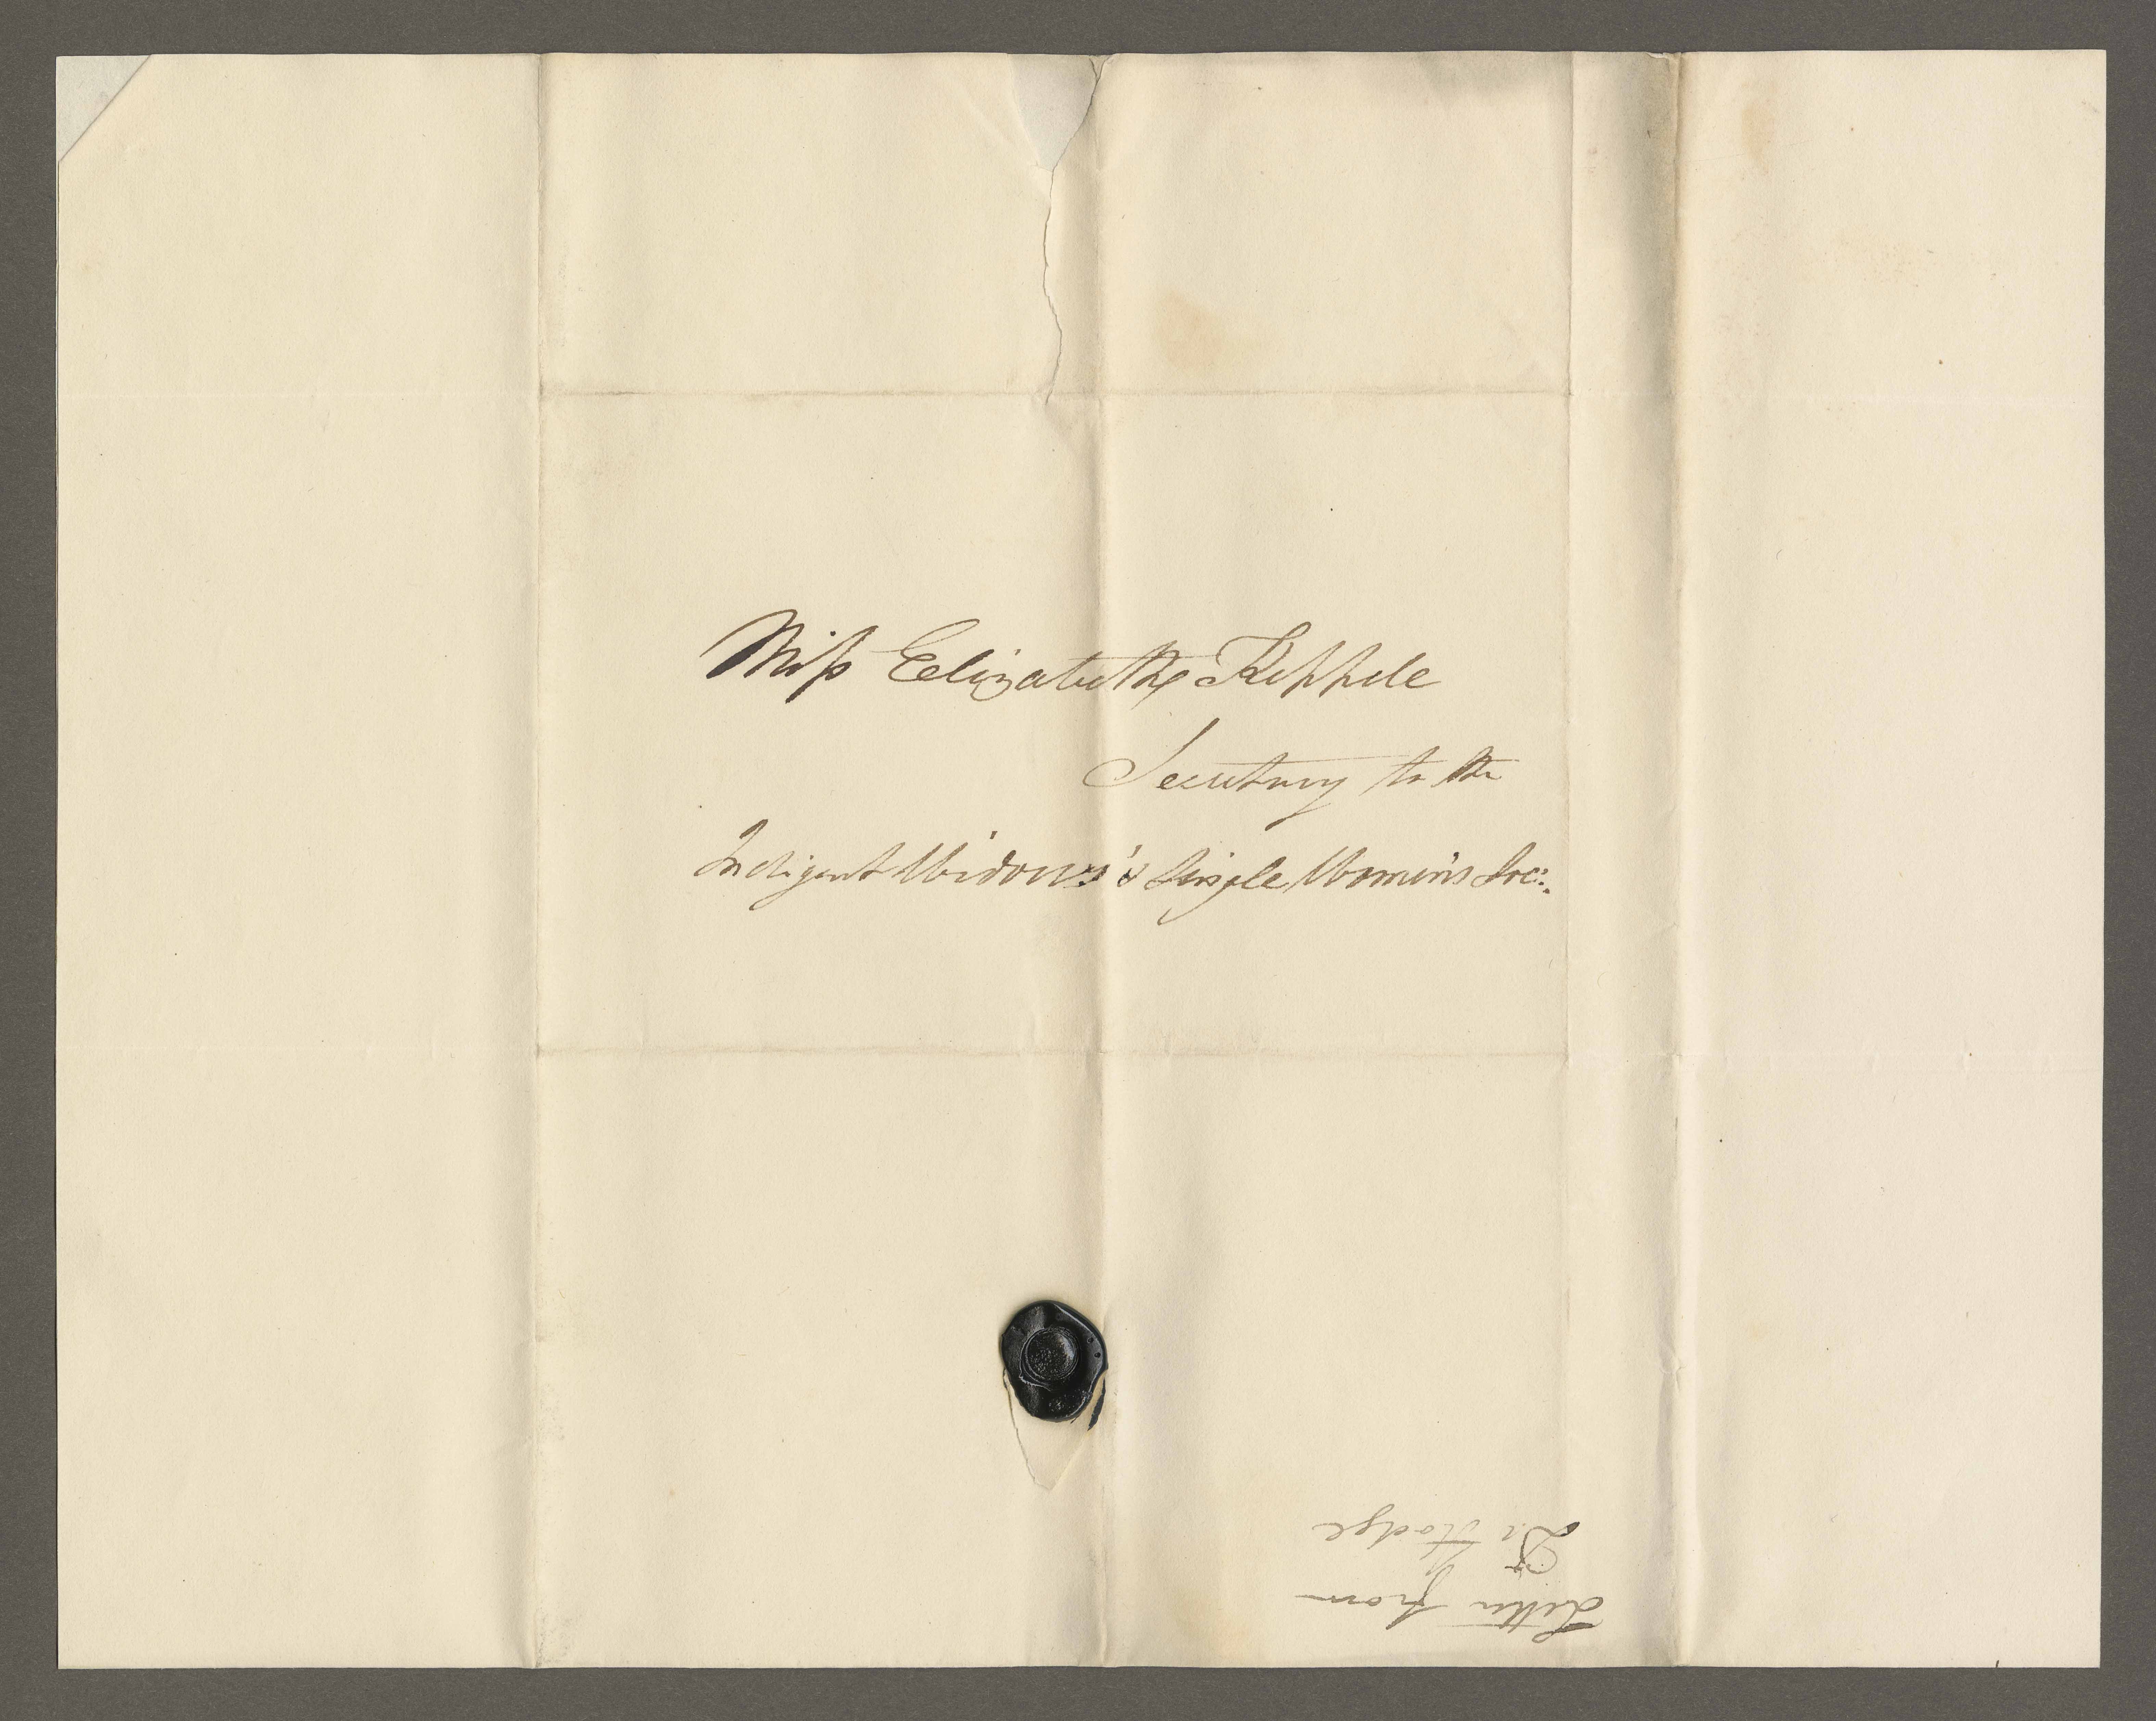 Miss Elizabeth Keppele
Secretary to the
Indigent Widows' & Single Women's Soc:.
Letter from
Dr Hodge